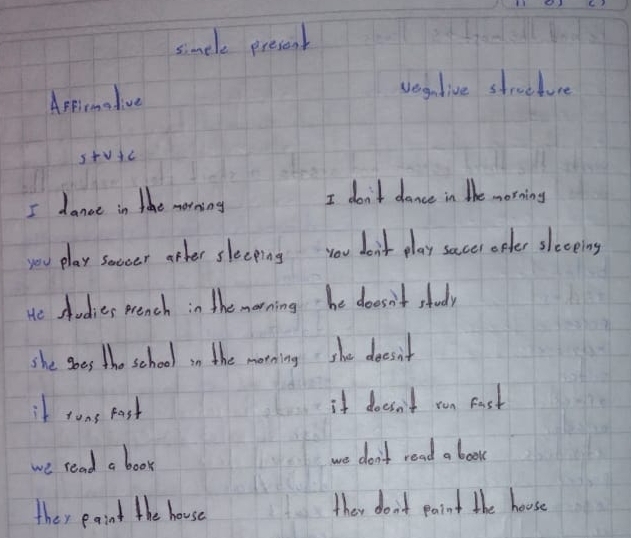 simple present
Affirmative
Negative structure
s+v+c
I dance in the morning
I don't dance in the morning
you play soccer after sleeping
you don't play soccer after sleeping
He studies french in the morning
he doesn't study
she goes tho school in the morning
she doesn't
it runs fast
it doesn't run fast
we read a book
we don't read a book
they paint the house
they don't paint the house